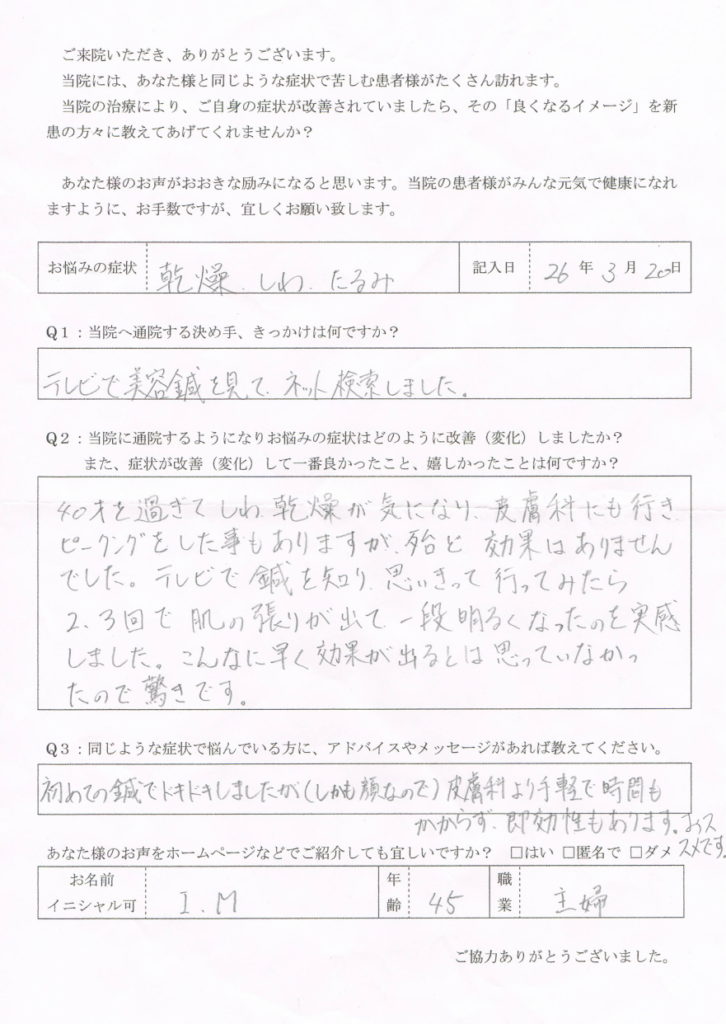 ご来院いただき、ありがとうございます。
当院には、あなた様と同じような症状で苦しむ患者様がたくさん訪れます。
当院の治療により、ご自身の症状が改善されていましたら、その「良くなるイメージ」を新
患の方々に教えてあげてくれませんか？
あなた様のお声がおおきな励みになると思います。当院の患者様がみんな元気で健康になれ
ますように、お手数ですが、宜しくお願い致します。
お悩みの症状 乾燥、しわ、たるみ 記入日 26年3月20日
Q1：当院へ通院する決め手、きっかけは何ですか？
テレビで美容鍼を見て、ネット検索しました。
Q2：当院に通院するようになりお悩みの症状はどのように改善（変化）しましたか？
また、症状が改善（変化）して一番良かったこと、嬉しかったことは何ですか？
40才を過ぎてしわ、乾燥が気になり、皮膚科にも行き
ピーリングをした事もありますが、殆ど効果はありません
でした。テレビで鍼を知り、思いきって行ってみたら
2、3回で肌の張りが出て、一段明るくなったのを実感
しました。こんなに早く効果が出るとは思っていなかっ
たので驚きです。
Q3：同じような症状で悩んでいる方に、アドバイスやメッセージがあれば教えてください。
初めての鍼でドキドキしましたが（しかも顔なので）皮膚科より手軽で時間も
かからず、即効性もあります。オススメです。
あなた様のお声をホームページなどでご紹介しても宜しいですか？ □はい □匿名で □ダメ
お名前 イニシャル可 I.M 年齢 45 職業 主婦
ご協力ありがとうございました。